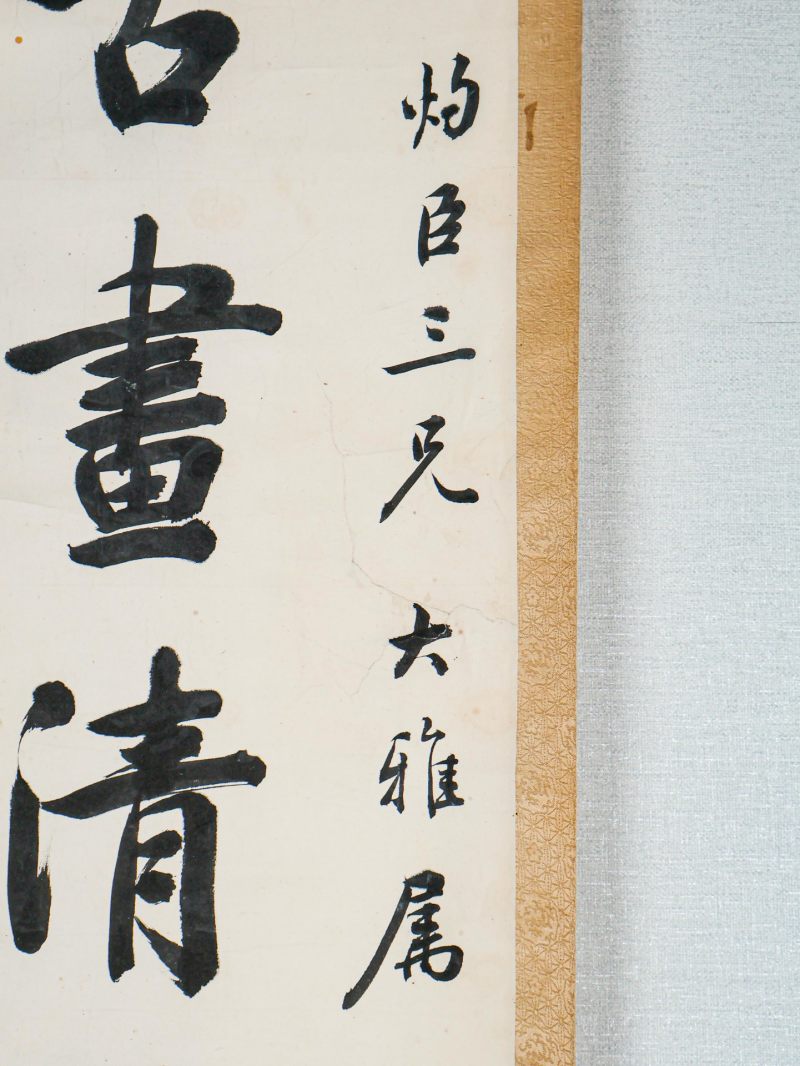 灼臣三兄大雅属
畫清